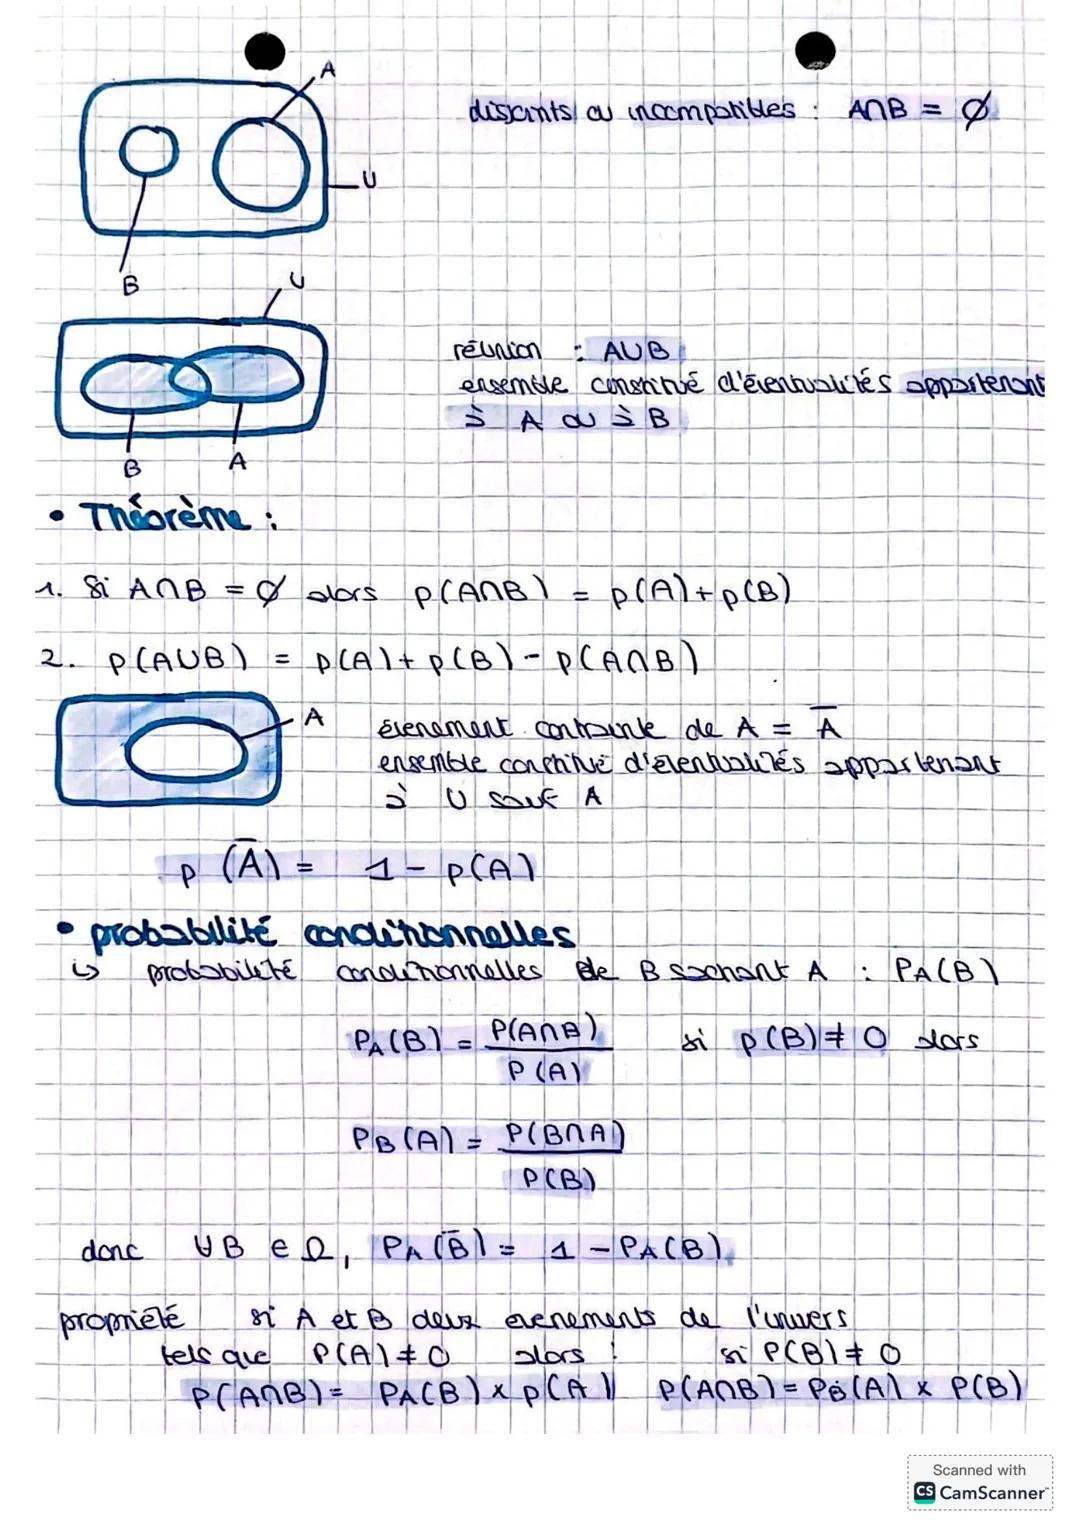 A
disjoints ou incompatibles : A∩B = Ø
U
B
U
réunion : AUB
ensemble constitué d'éventualités appartenant
à A ou à B
B A
• Théorème :
1. Si A∩B = Ø alors p(A∩B) = p(A)+p(B)
2. p(AUB) = p(A)+p(B)-p(A∩B)
A
évenement contrainte de A = A̅
ensemble constitué d'éventualités appartenant
à U sauf A
p (A̅) = 1 - p(A)
• probabilité conditionnelles
↳ probabilité conditionnelles de B sachant A : PA(B)
PA(B) = P(A∩B) / P(A) si p(B) ≠ 0 alors
PB(A) = P(B∩A) / P(B)
donc ∀B ∈ Ω, PA(B̅) = 1 - PA(B)
propriété si A et B deux evenements de l'univers
tels que P(A) ≠ 0 alors : si P(B) ≠ 0
P(A∩B) = PA(B) x p(A) P(A∩B) = PB(A) x P(B)
Scanned with
CS CamScanner